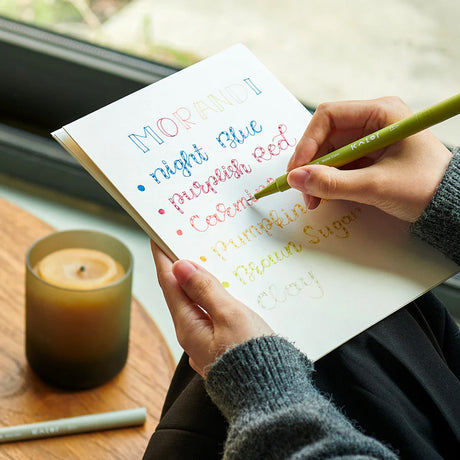 MORANDI
• Night Blue
• Purplish Red
• Carmine
• Pumpkin
• Brown Sugar
Clay
KALOI
KALOI